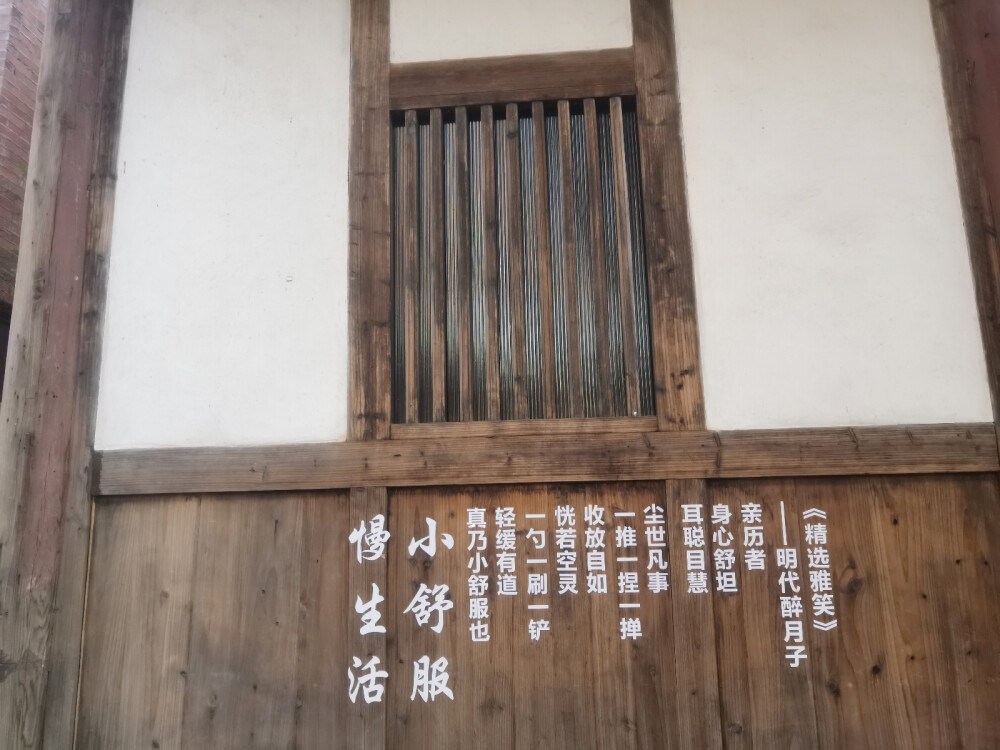 《精选雅笑》
——明代醉月子
亲历者
身心舒坦
耳聪目慧
尘世凡事
一推一捏一掸
收放自如
恍若空灵
一勺一刷一铲
轻缓有道
真乃小舒服也
小舒服
慢生活